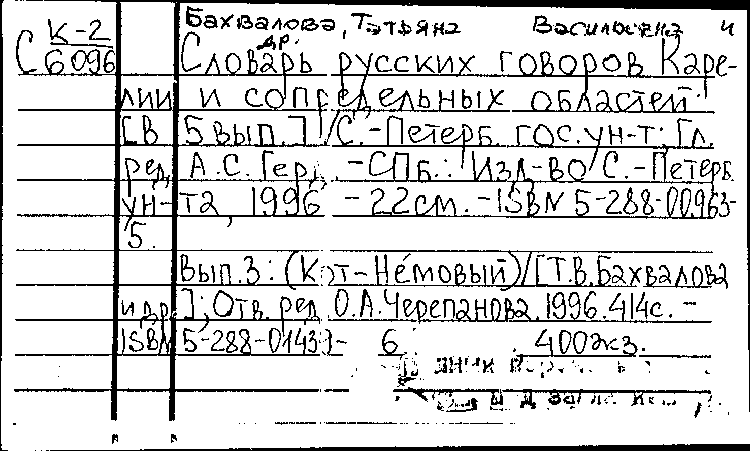 Бахвалова, Татьяна Васильевна и
др.
К-2
С 6096
Словарь русских говоров Каре-
лии и сопредельных областей:
[В 5 вып.] / С.-Петерб. гос. ун-т; Гл.
ред. А.С. Герд. - СПб.: Изд-во С.-Петерб.
ун-та, 1996 - 22см. - ISBN 5-288-00963-
5.
Вып.3: (Кот-Немовый)/[Т.В.Бахвалова
и др.]; Отв. ред О.А.Черепанова. 1996. 414с. -
ISBN 5-288-01439- 6 400экз.